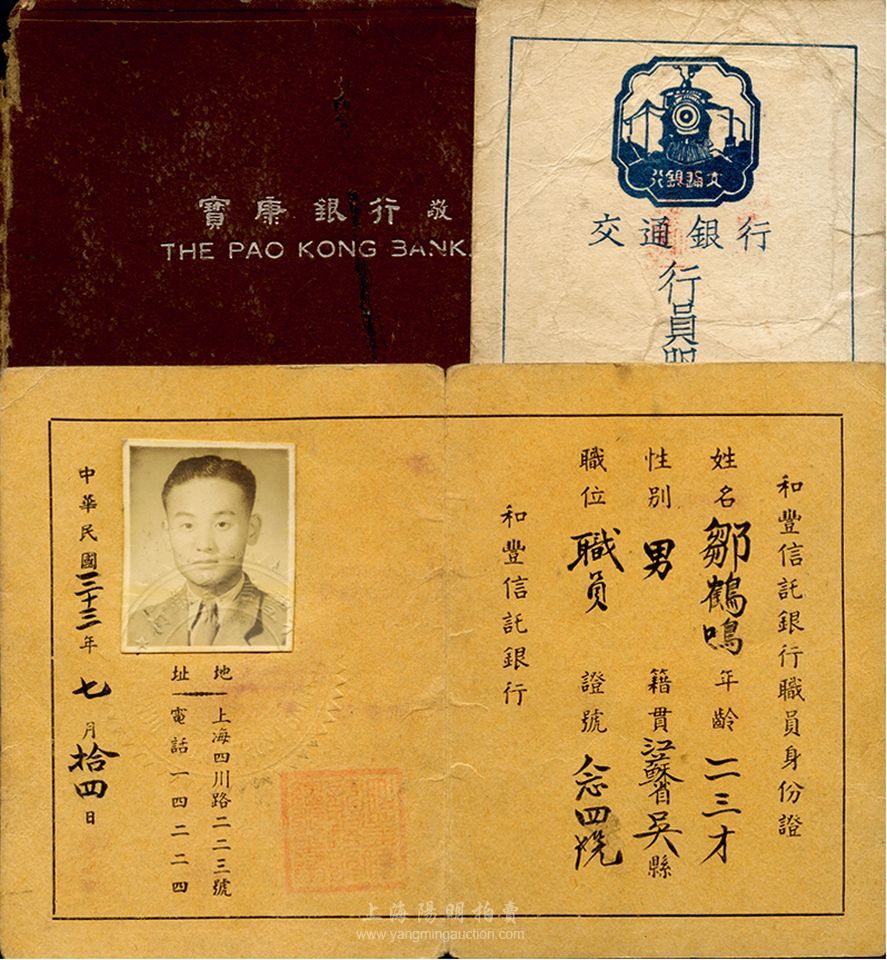 寶康銀行 敬
THE PAO KONG BANK.
交通銀行
交通銀行
行員
和豐信託銀行職員身份證
姓名 鄒鶴鳴 年齡 二三才
性別 男 籍貫 江蘇省吳縣
職位 職員 證號 念四號
和豐信託銀行
地址 上海四川路二二三號
電話一四二二四
中華民國三十三年七月拾四日
上海陽明拍賣
www.yangmingauction.com